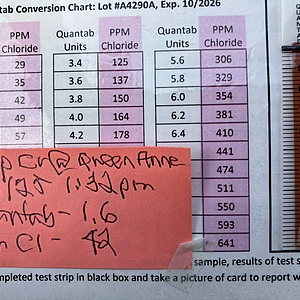 tab Conversion Chart: Lot #A4290A, Exp. 10/2026
PPM Chloride Quantab Units PPM Chloride Quantab Units PPM Chloride
29 3.4 125 5.6 306
35 3.6 137 5.8 329
42 3.8 150 6.0 354
49 4.0 164 6.2 381
57 4.2 178 6.4 410
441
474
511
550
593
641
p Cr @ Queen Anne
1:32 pm
ntab - 1.6
Cl - 42
sample, results of test s
mpleted test strip in black box and take a picture of card to report w